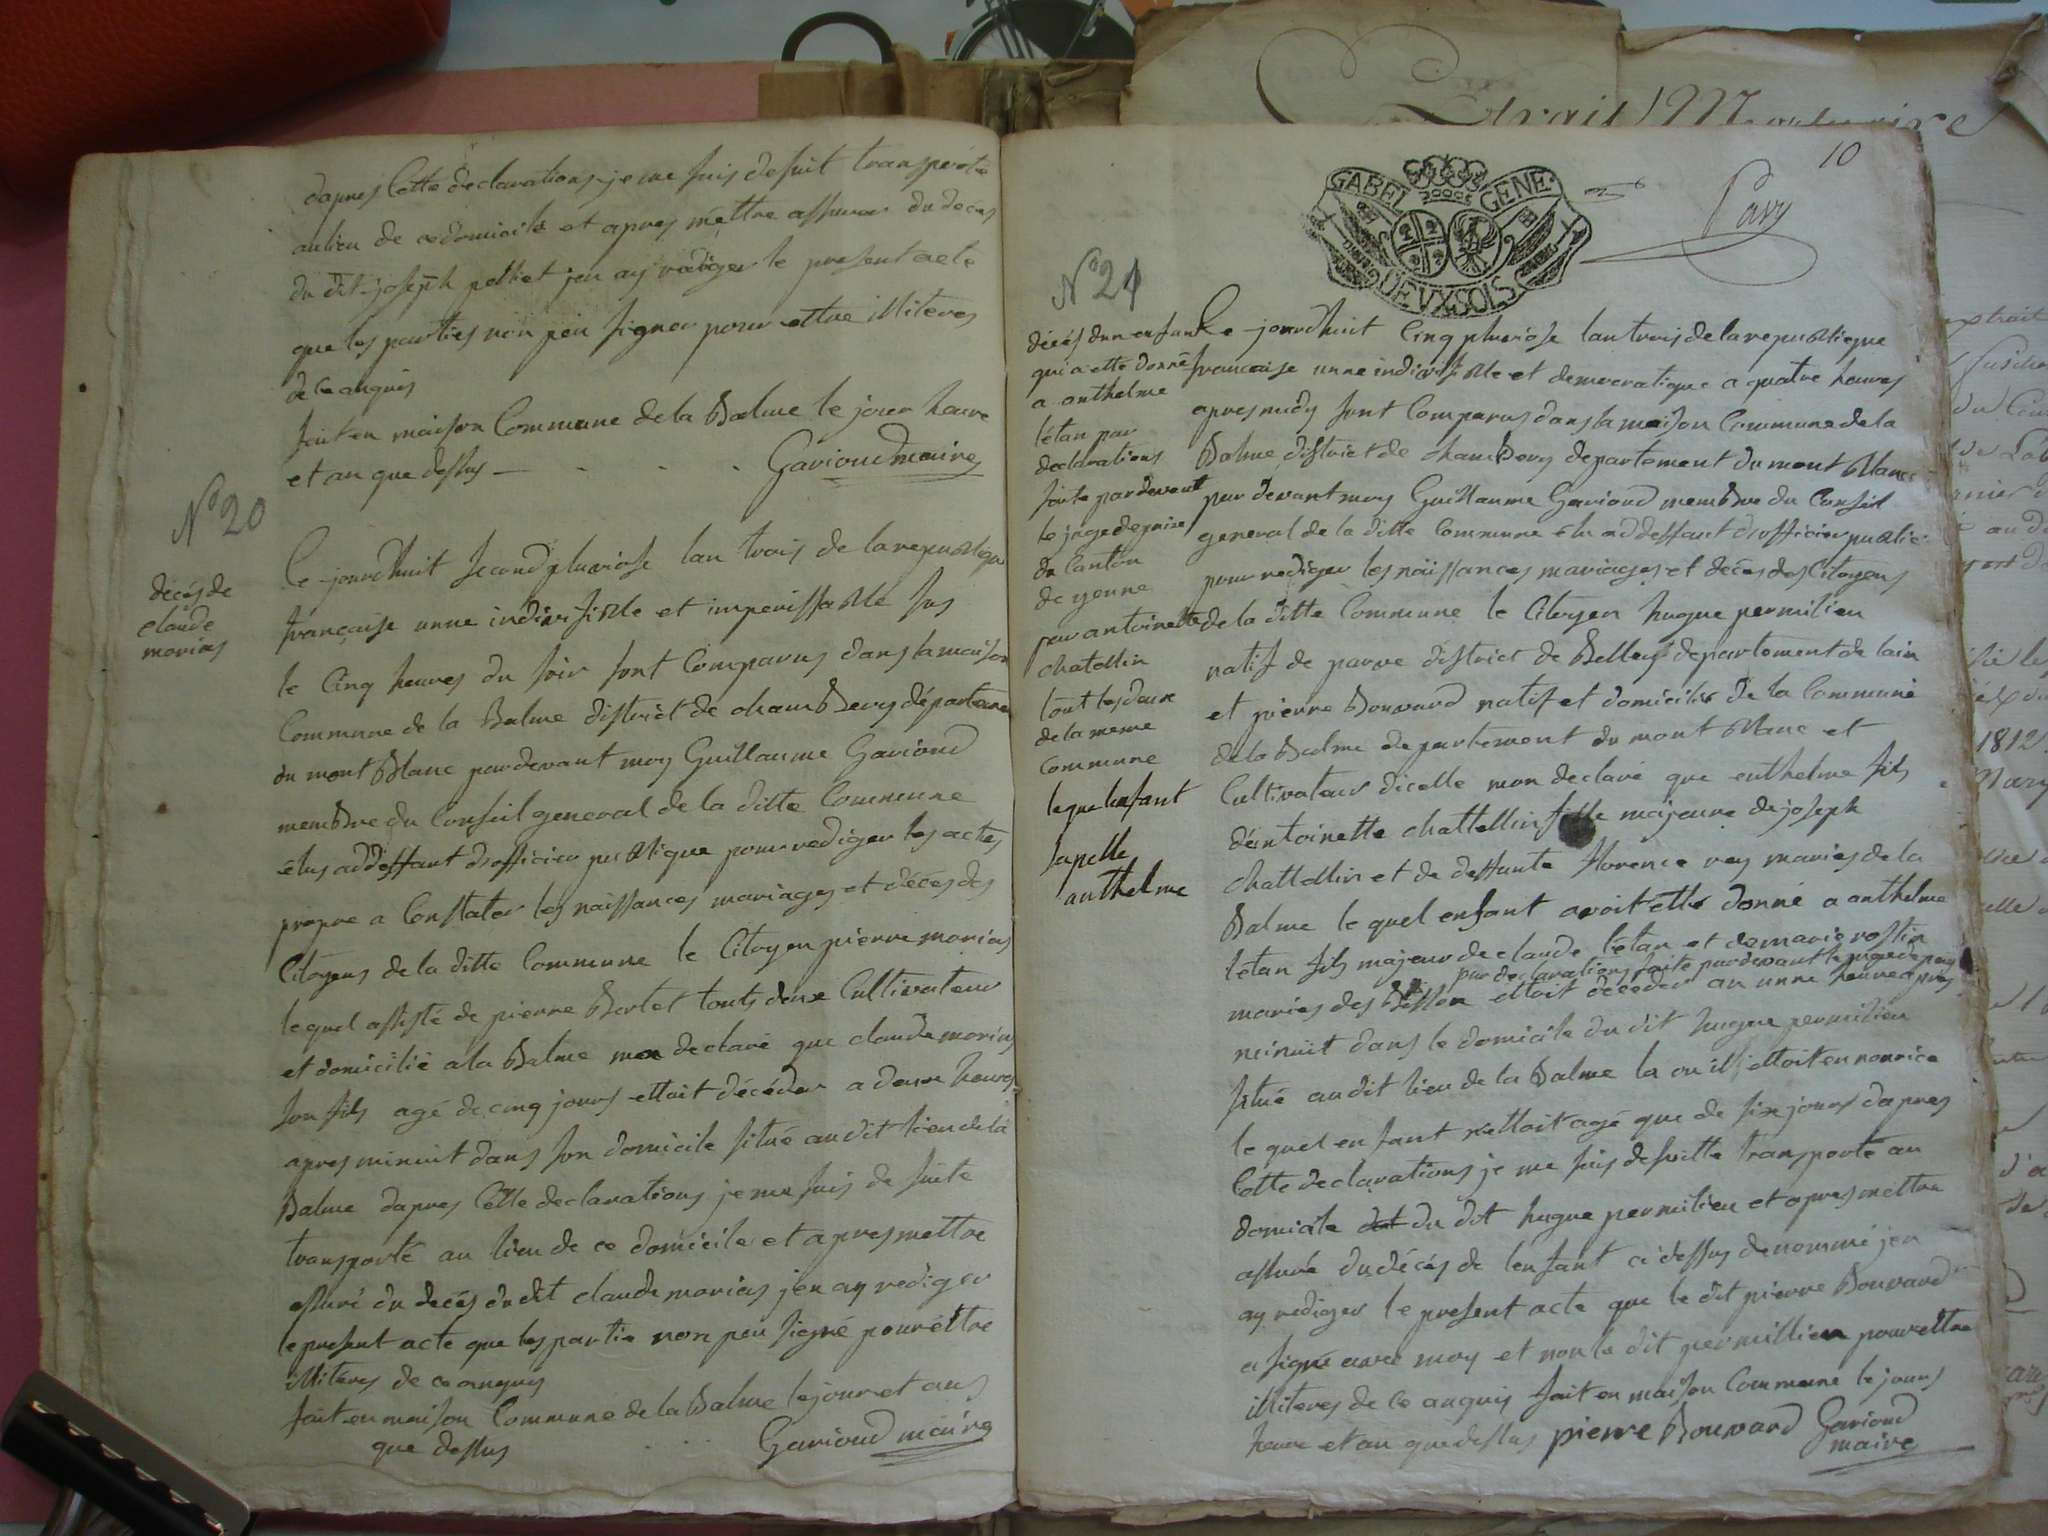 dapres Cette declarations je me suis de suit transporté
au lieu de ce domicile et apres mettre assurer du deces
du dit joseph polliet jen ay rediger le present acte
que les parties non peu signer pour ettre illiteres
de ce anquis
fait en maison Commune de la Balme le jour heure
et an que dessus Garioud maire
N° 20
décés de
claude
morias
Ce jourdhuit second pluviose lan trois de la republique
française unne indivisible et imperissable sus
le Cinq heures du soir sont Comparus dans la maison
Commune de la Balme district de chambery département
du mont Blanc pardevant moy Guillaume Garioud
membre du Conseil general de la ditte Commune
élus addeffaut dofficier publique pour rediger les actes
propre a Constater les naissances mariages et décés des
Citoyens de la ditte Commune le Citoyen pierre morias
lequel assisté de pierre Bertet touts deux Cultivateur
et domicilié a la Balme mon declaré que claude morias
son fils agé de cinq jours ettoit décéder a deux heures
apres minuit dans son domicile situé au dit lieu de la
Balme dapres Cette declarations je me suis de suite
transporté au lieu de ce domicile et apres mettre
assuré du decés du dit claude morias jen ay rediger
le present acte que les partie non peu signé pour éttre
illitéres de ce anquis
fait en maison Commune de la Balme le jour et ans
que dessus Garioud maire
Extrait M
10
GABEL GENE.
DEUX SOLS
Pavy
N° 21
décés dun enfant
qui a etté donné
a anthelme
létan par
declarations
faite pardevant
le juge de paix
du Canton
de yenne
par antoinette
chatellin
tout les deux
de la meme
Commune
lequel enfant
sapelle
anthelme
Ce jourdhuit Cinq pluviose lan trois de la republique
francaise unne indivisible et democratique a quatre heures
apres midy sont Comparus dans la maison Commune de la
Balme district de chambery departement du mont Blanc
par devant moy Guillaume Garioud membre du Conseil
general de la ditte Commune élu addeffaut dofficier publie
pour rediger les naissances mariages et décés des Citoyens
de la ditte Commune le Citoyen hugue permilieu
natif de parve district de Belley departement de lain
et pierre Bouvard natif et domicilié de la Commune
de la Balme departement du mont Blanc et
Cultivateur dicelle mon declaré que enthelme fils
dantoinette chattellin fille majeure de joseph
chattellin et de deffunte florence rey mariés de la
Balme le quel enfant avoit etté donné a anthelme
létan fils majeur de claude létan et de marie rostin
par declarations faite pardevant le juge de paix
mariés des ettoit deceder a unne heure apres
meinuit dans le domicile du dit hugue permilieu
situé au dit lieu de la Balme la ou ill ettoit en nourice
le quel enfant nettoit agé que de six jours dapres
Cette declarations je me suis de suitte transporté au
domicile du dit hugue permilieu et apres mettre
assuré du décés de lenfant ci dessus denommé jen
ay rediger le present acte que le dit pierre Bouvard
a signé avec moy et non le dit permillieu pour ettre
illiteres de ce anquis fait en maison Commune le jours
heure et an que dessus pierre Bouvard Garioud
maire
1812